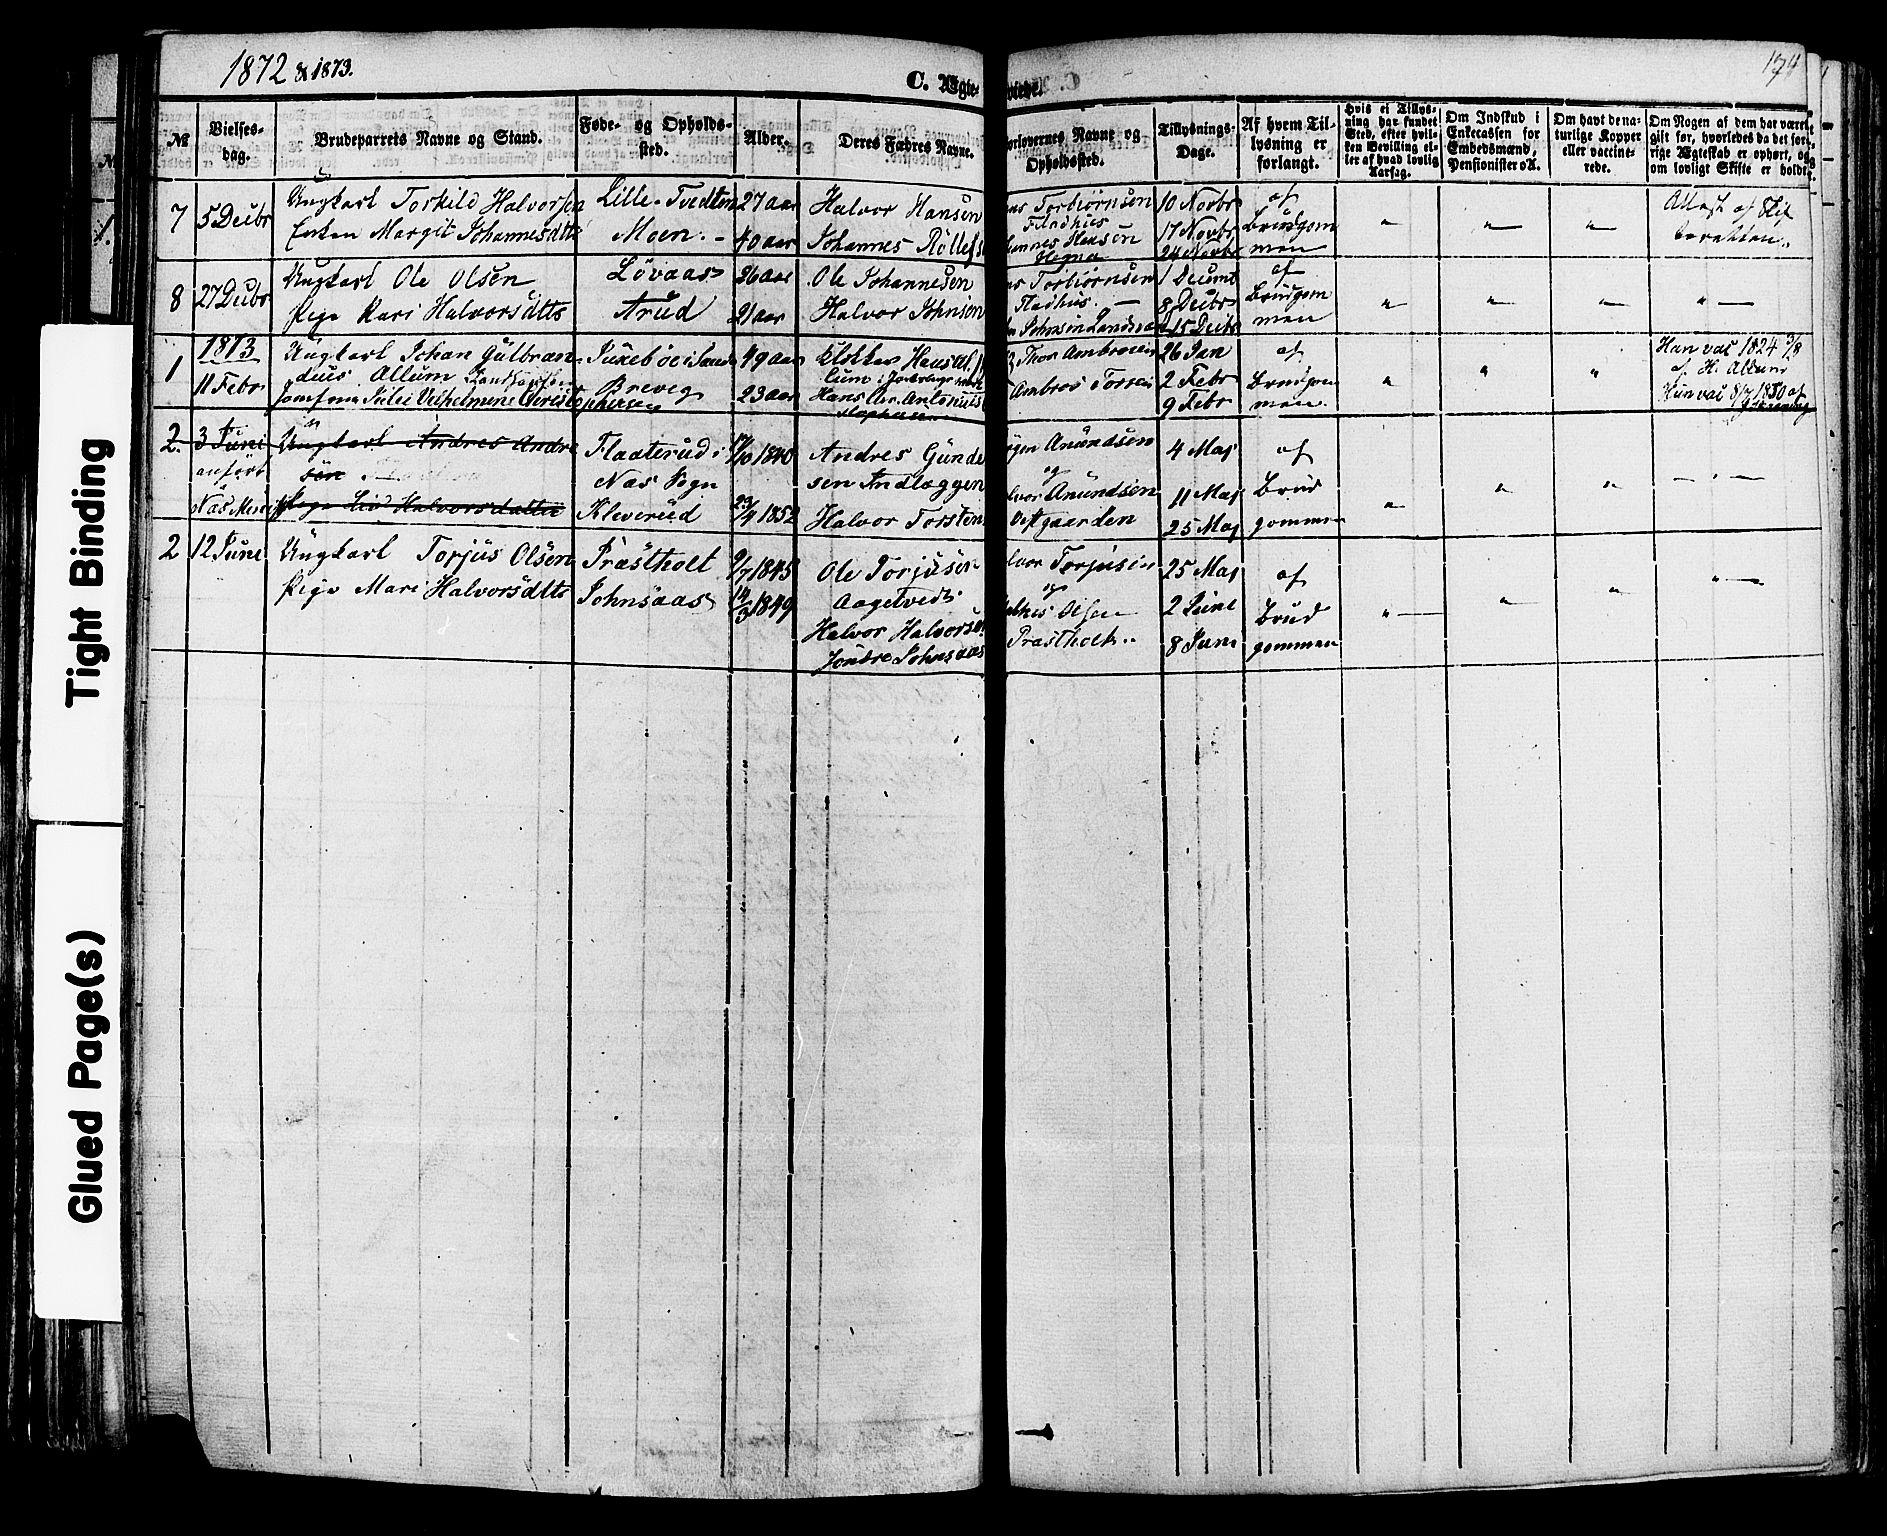 1872 & 1873.
C. Ægte-
viede.
174
№
Vielses-
dag.
Brudeparrets Navne og Stand.
Føde- og Opholds-
sted.
Alder.
Deres Fædres Navne.
Forlovernes Navne og
Opholdssted.
Tillysnings-
Dage.
Af hvem Til-
lysning er
forlangt.
Hvis ei Tillys-
ning har fundet
Sted, efter hvil-
ken Bevilling el-
ler af hvad lovlig
Aarsag.
Om Indskud i
Enkecassen for
Embedsmænd,
Pensionister o.A.
Om havt de na-
turlige Kopper
eller vaccine-
rede.
Om Nogen af dem har været
gift før, hvorledes da det for-
rige Ægteskab er ophørt, og
om lovligt Skifte er holdt.
7
5 Decbr
Ungkarl Torkild Halvorsen
Enken Margit Johannesdttr
Lille-Tvedten
Moen. -
27 aar
40 aar
Halvor Hansen
Johannes Rollefs
Torbiørnsen
Fladhus
Hansen
10 Novbr
17 Novbr
24 Novbr
af
Brudgom
men
" —
" —
" —
Attest af Skif
teretten "
8
27 Decbr
Ungkarl Ole Olsen
Pige Kari Halvorsdttr
Løvaas
Arud
26 aar
21 aar
Ole Johannesen
Halvor Johnson
Torbiørnsen
Fladhus. —
Johnsen
1 Decmt
8 Decbr
15 Decbr
af
Brudgom
men
" —
" —
" —
" —
1873
1
11 Febr
Ungkarl Johan Gulbran-
dus Allum
Jomfrue Julie Vilhelmine Christo
phersen
Brevig
49 aar
23 aar
Hans Chr. Antonius
Thor Ambrosen
Ambros Torsen
26 Jan
2 Febr
9 Febr
af
Brudgom
men
"
"
"
Han vac 1824
af H. Allum
Hun vac 1850 af
2.
3 Juni
anført
Næs
Ungkarl Andres Andre
sen
Pige Liv Halvorsdatter
Flaaterud i
Næs Sogn
Kleverud
17/10 1840
23/9 1852
Andres Gunde
sen Andlaggen
Halvor Torsten
Anundsen
og
Anundsen
4 Maj
11 Maj
25 Maj
af
Brud
gommen
" —
" —
" —
" —
2
12 Juni
Ungkarl Torjus Olsen
Pige Mari Halvorsdttr
Præstholt
Johnsaas
9/7 1845
14/3 1849
Ole Torjusen
Aagetvedt
Halvor Halvors
Johnsaas
Torjusen
og
Olsen
Præstholt "
25 Maj
2 Juni
8 Juni
af
Brud
gommen
" —
" —
" —
" —
Tight Binding
Glued Page(s)